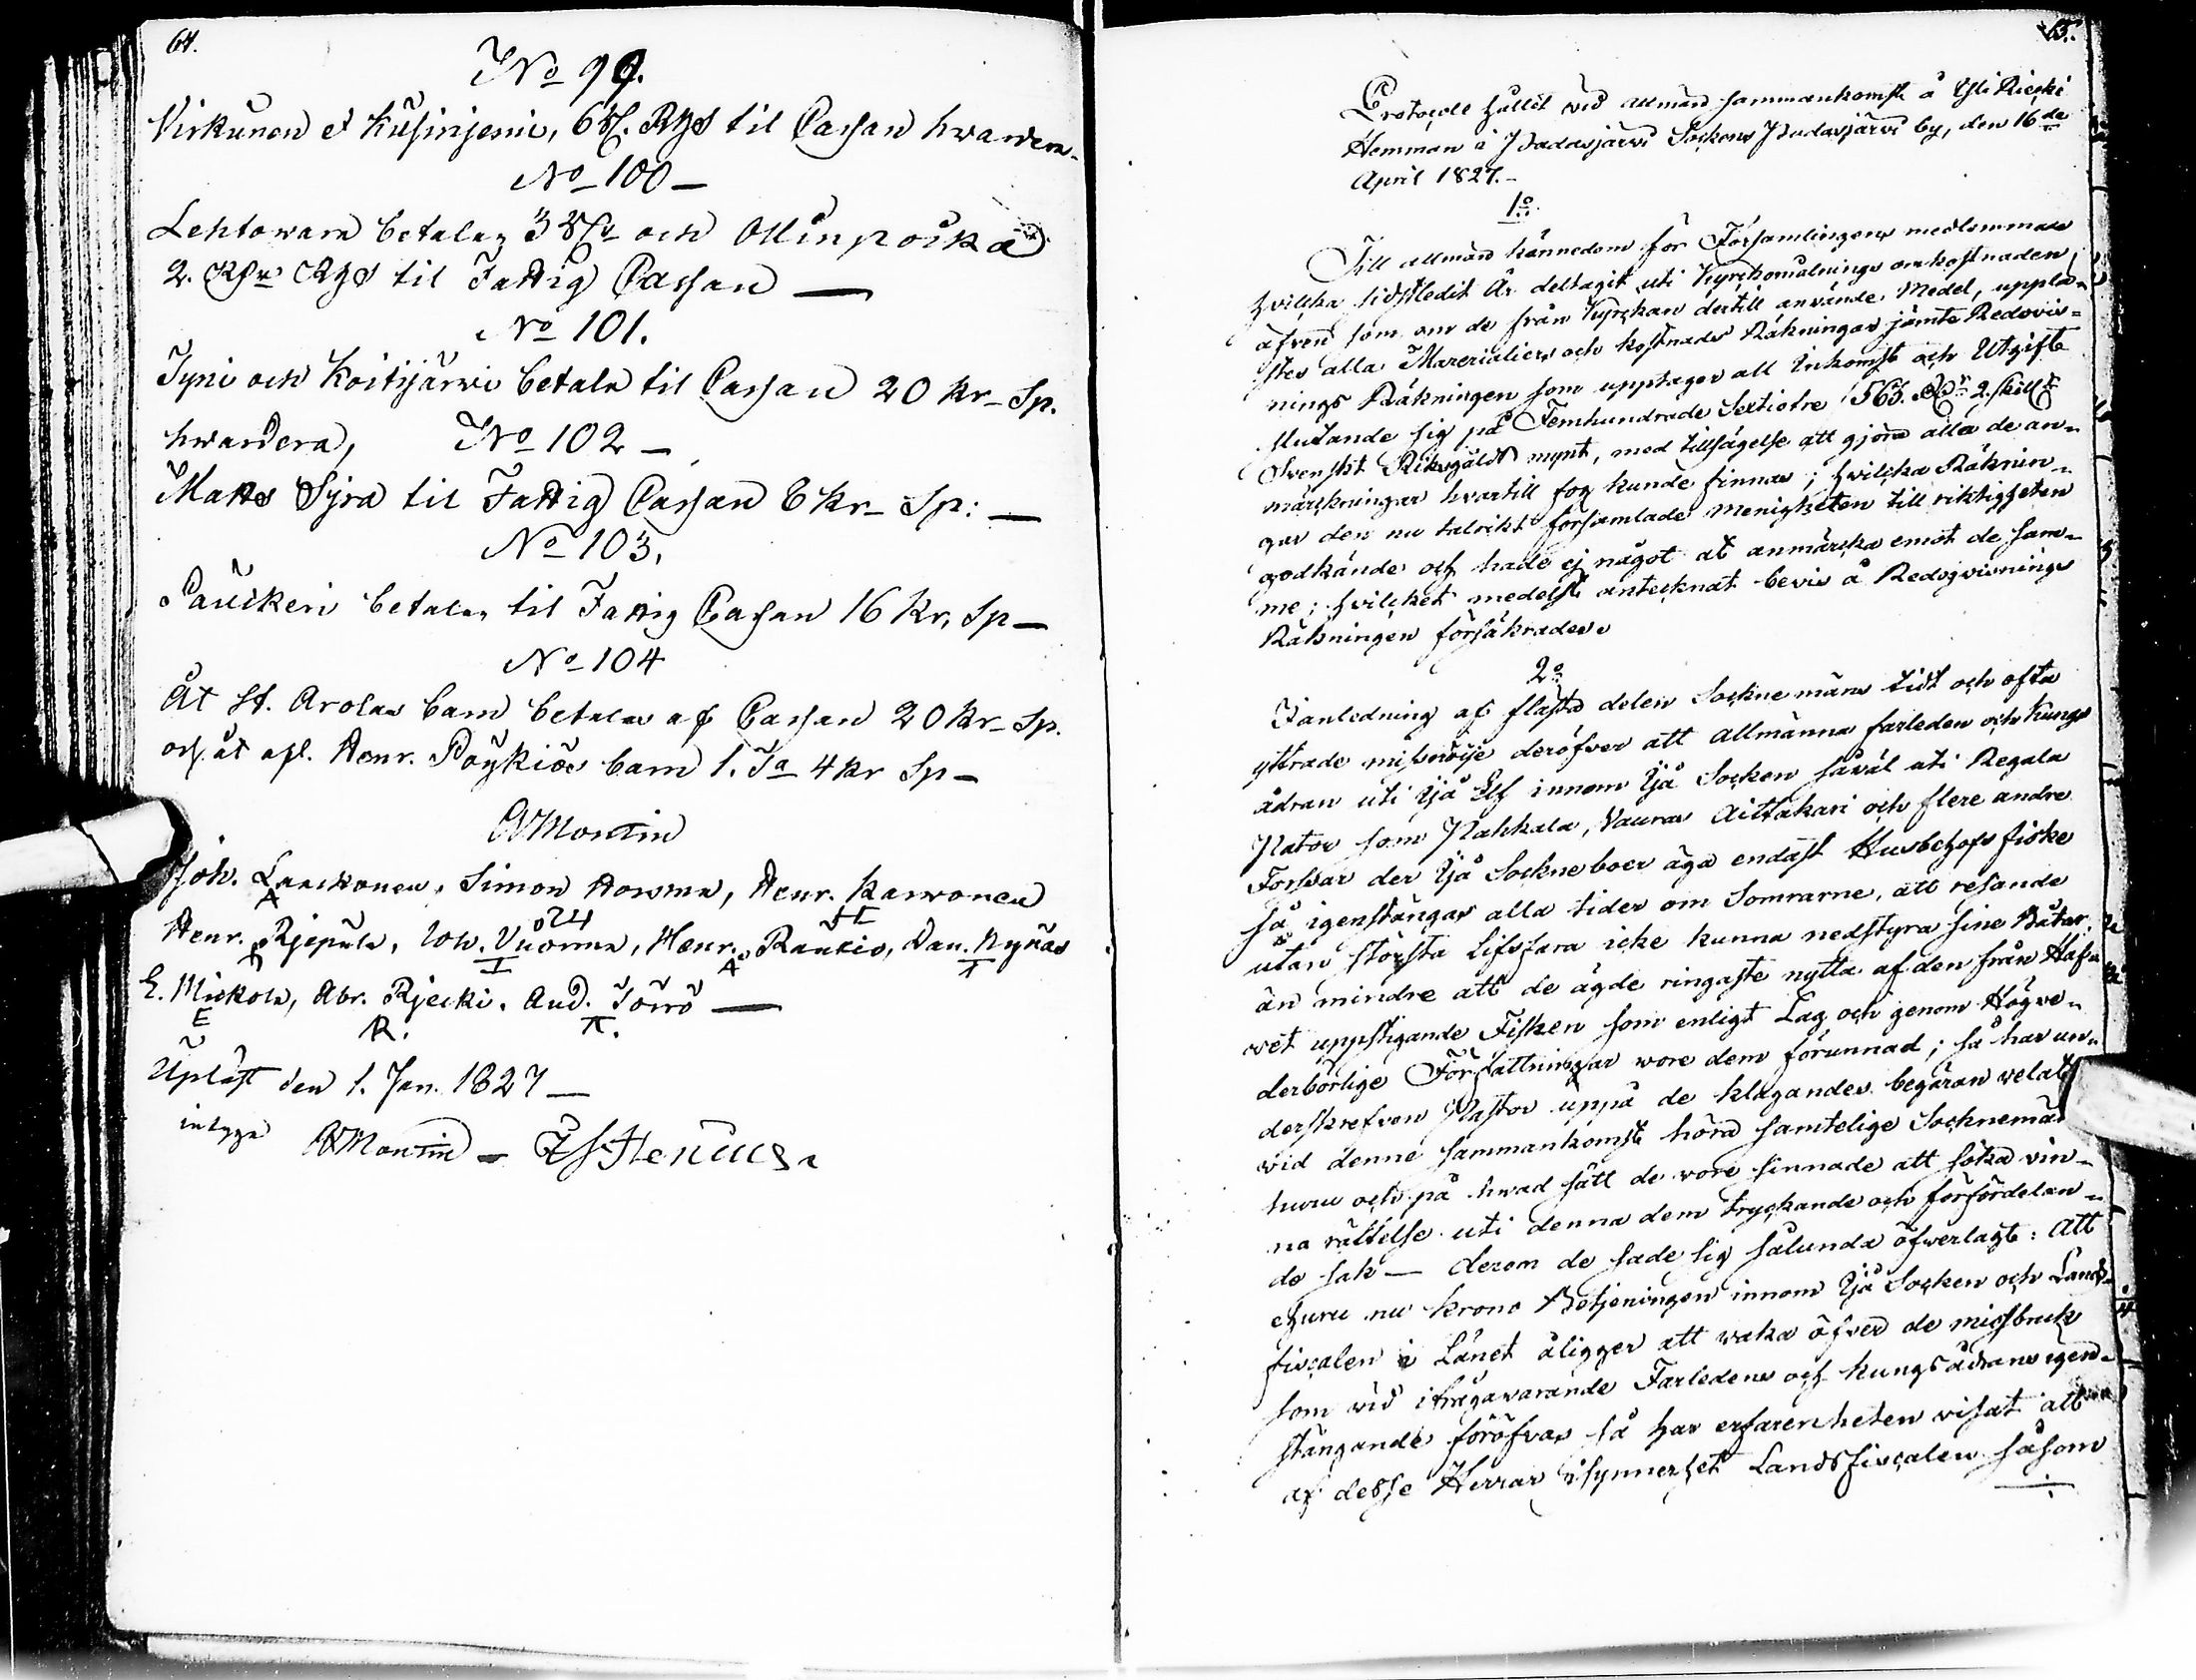 64.
No 99.
Virkunen et Kusinjemi, 6 Sk. Rgs til Cassan hwardera.
No 100 —
Lehtowara betalas 3 och Ollinpoika
2. Rgs til Fattig Cassan —
No 101.
Jyni och Koitijärwi betala til Cassan 20 kr Sp.
hwardera, No 102 —
Matts Sjra til Fattig Cassan 6 kr Sp: —
No 103,
Pauckeri betalar til Fattig Cassan 16 kr, Sp —
No 104
Åt St. Arolas barn betalas af Cassan 20 kr Sp.
och åt afl. Henr. Pöykiös barn 1. Ja 4 kr Sp —
Montin
Joh. Simon Henr. Karvonen
A H
Henr. Rjepula, Joh. Vuorma, Henr. Rautio, Dan. Nynäs
E. Mickola, Abr. Rjecki. And. Törrö —
E R. T.
Upläst den 1. Jan. 1827 —
intyga Montin —
65.
Protocoll hållit vid allmän sammankomst å Yli Riecki
Hemman i Pudasjärvi Sockens Pudasjärvi by, den 16de
April 1827. —
1o
Till allmän kännedom för Församlingens medlemmar
hvilcka sidstledit År deltagit uti Kyrckomålnings omkostnaden,
äfven som om de från Kyrckan dertill använde Medel, upplä-
stes alla Marerialiers och kostnads Räkningar jämte Redovis-
nings Räkningen som upptager all Inkomst och Utgift
slutande sig på Femhundrade Sextiotre 563. 2. skill
Svenskt Riksgälds mynt, med tillsägelse att gjöra alla de an-
märckningar hvartill fog kunde finnas; hvilcka Räknin-
gar den nu talrikt församlade Menigheten till riktigheten
godkände och hade ej något at anmärcka emot de sam-
me; hvilcket medelst antecknat bevis å Redogvisnings
Räkningen försäkrades.
2o
I anledning af flästa delen Sockne mäns tidt och ofta
yttrade missnöije deröfver att allmänna farleden och Kungs
ådran uti Ijå Elf innom Ijå Socken såväl uti Regala
Pator som Pahkala, Vauras Aittakari och flere andre
Forssar der Ijå Sockneboer äga endast Husbehofs fiske
så igenstängas alla tider om Somrarne, att resande
utan största Lifsfara icke kunna nedstyra sine Båtar,
än mindre att de ägde ringaste nytta af den från Haf-
vet uppstigande Fisken som enligt Lag och genom Högve-
derbörlige Författningar wore dem förunnad; så har un-
derskrefven Pastor uppå de klagandes begäran velat
vid denne sammankomst höra samtelige Socknemän
huru och på hwad sätt de wore sinnade att söka vin-
na rättelse uti denna dem tryckande och förfördelan-
de sak — derom de sade sig sålunda öfwerlagt: Att
ehuru nu krono Betjeningen innom Ijå Socken och Lands-
fiscalen i Länet åligger att waka öfver de missbruk
som vid ifrågavarande Farledens och kungsådrans igen-
stängande föröfvas så har erfarenheten visat att
af desse Herrar isynnerhet Landsfiscalen såsom